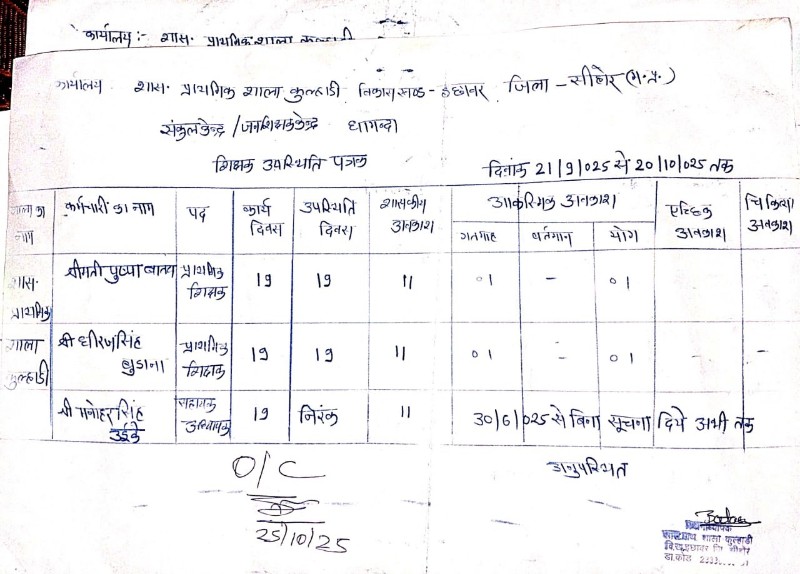 कार्यालय :- शास. प्राथमिक शाला कुल्हाडी
कार्यालय शास. प्राथमिक शाला कुल्हाडी विकास खण्ड - इछावर जिला - सीहोर (म.प्र.)
संकुल केन्द्र / जनशिक्षा केन्द्र धामन्दा
शिक्षक उपस्थिति पत्रक
दिनांक 21/9/025 से 20/10/025 तक
शाला का नाम कर्मचारी का नाम पद कार्य दिवस उपस्थिति दिवस शासकीय अवकाश आकस्मिक अवकाश ऐच्छिक अवकाश चिकित्सा अवकाश
गतमाह वर्तमान योग
शास. प्राथमिक श्रीमती पुष्पा प्राथमिक शिक्षक 19 19 11 01 - 01
शाला कुल्हाडी श्री धीरजसिंह प्राथमिक शिक्षक 19 19 11 01 - 01 - -
श्री मनोहरसिंह उईके सहायक अध्यापक 19 निरंक 11 30/6/025 से बिना सूचना दिये अभी तक
अनुपस्थित
O/C
25/10/25
शास. प्राथ. शाला कुल्हाडी
वि.ख. इछावर जि. सीहोर
डा.कोड